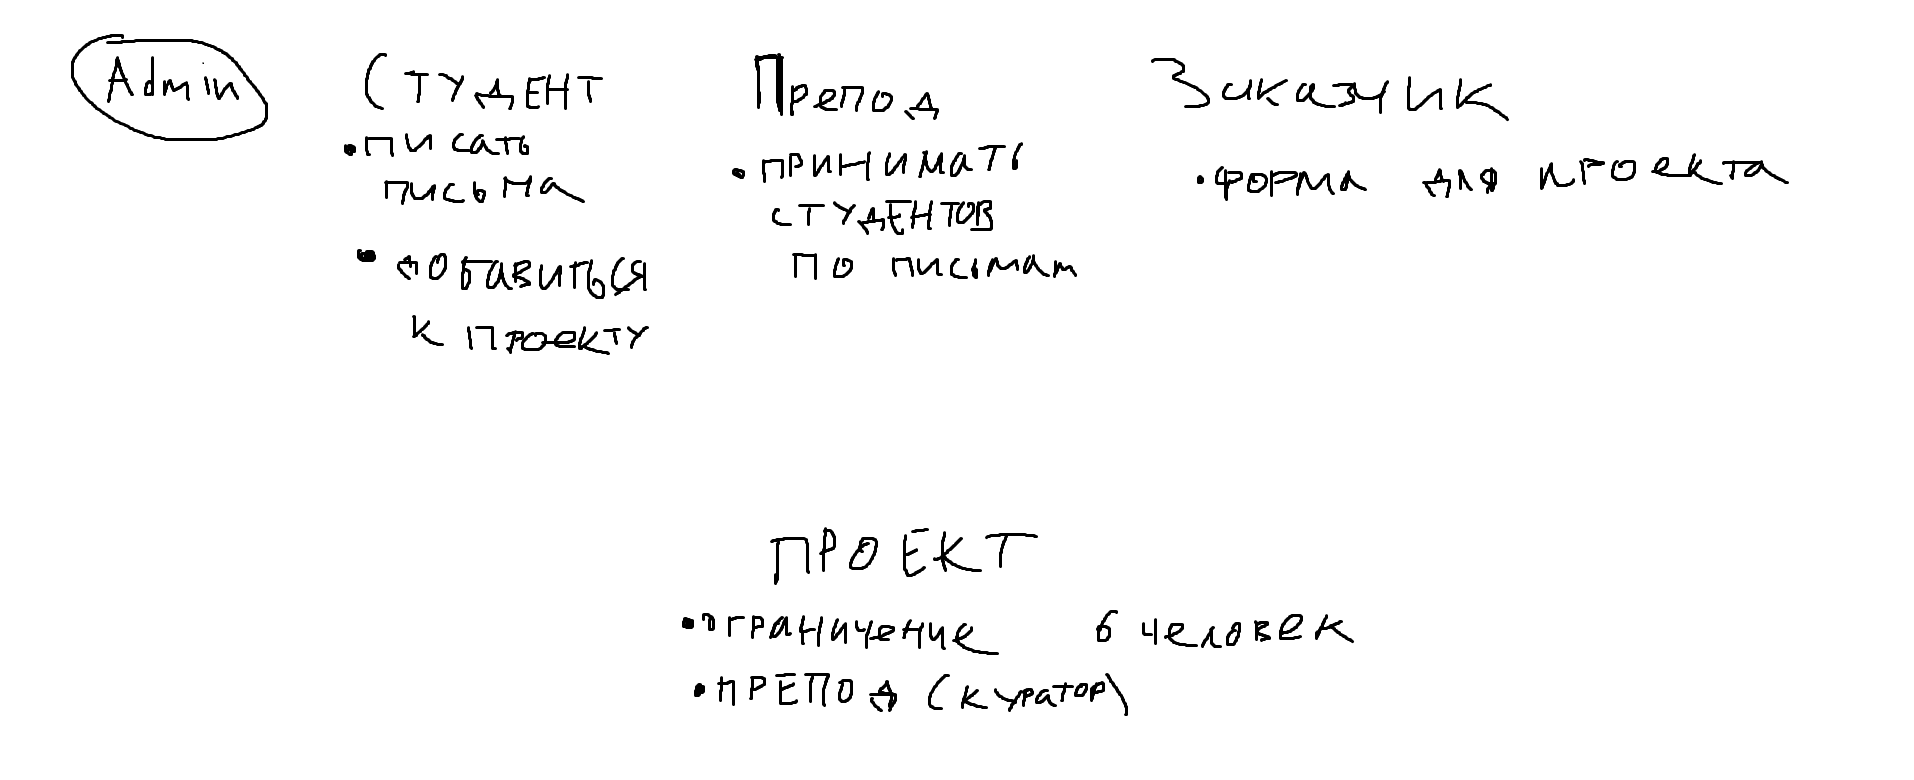 Admin
Студент
• писать
письма
• добавиться
к проекту
Препод
• принимать
студентов
по письмам
Заказчик
• форма для проекта
ПРОЕКТ
• ограничение 6 человек
• ПРЕПОД (куратор)